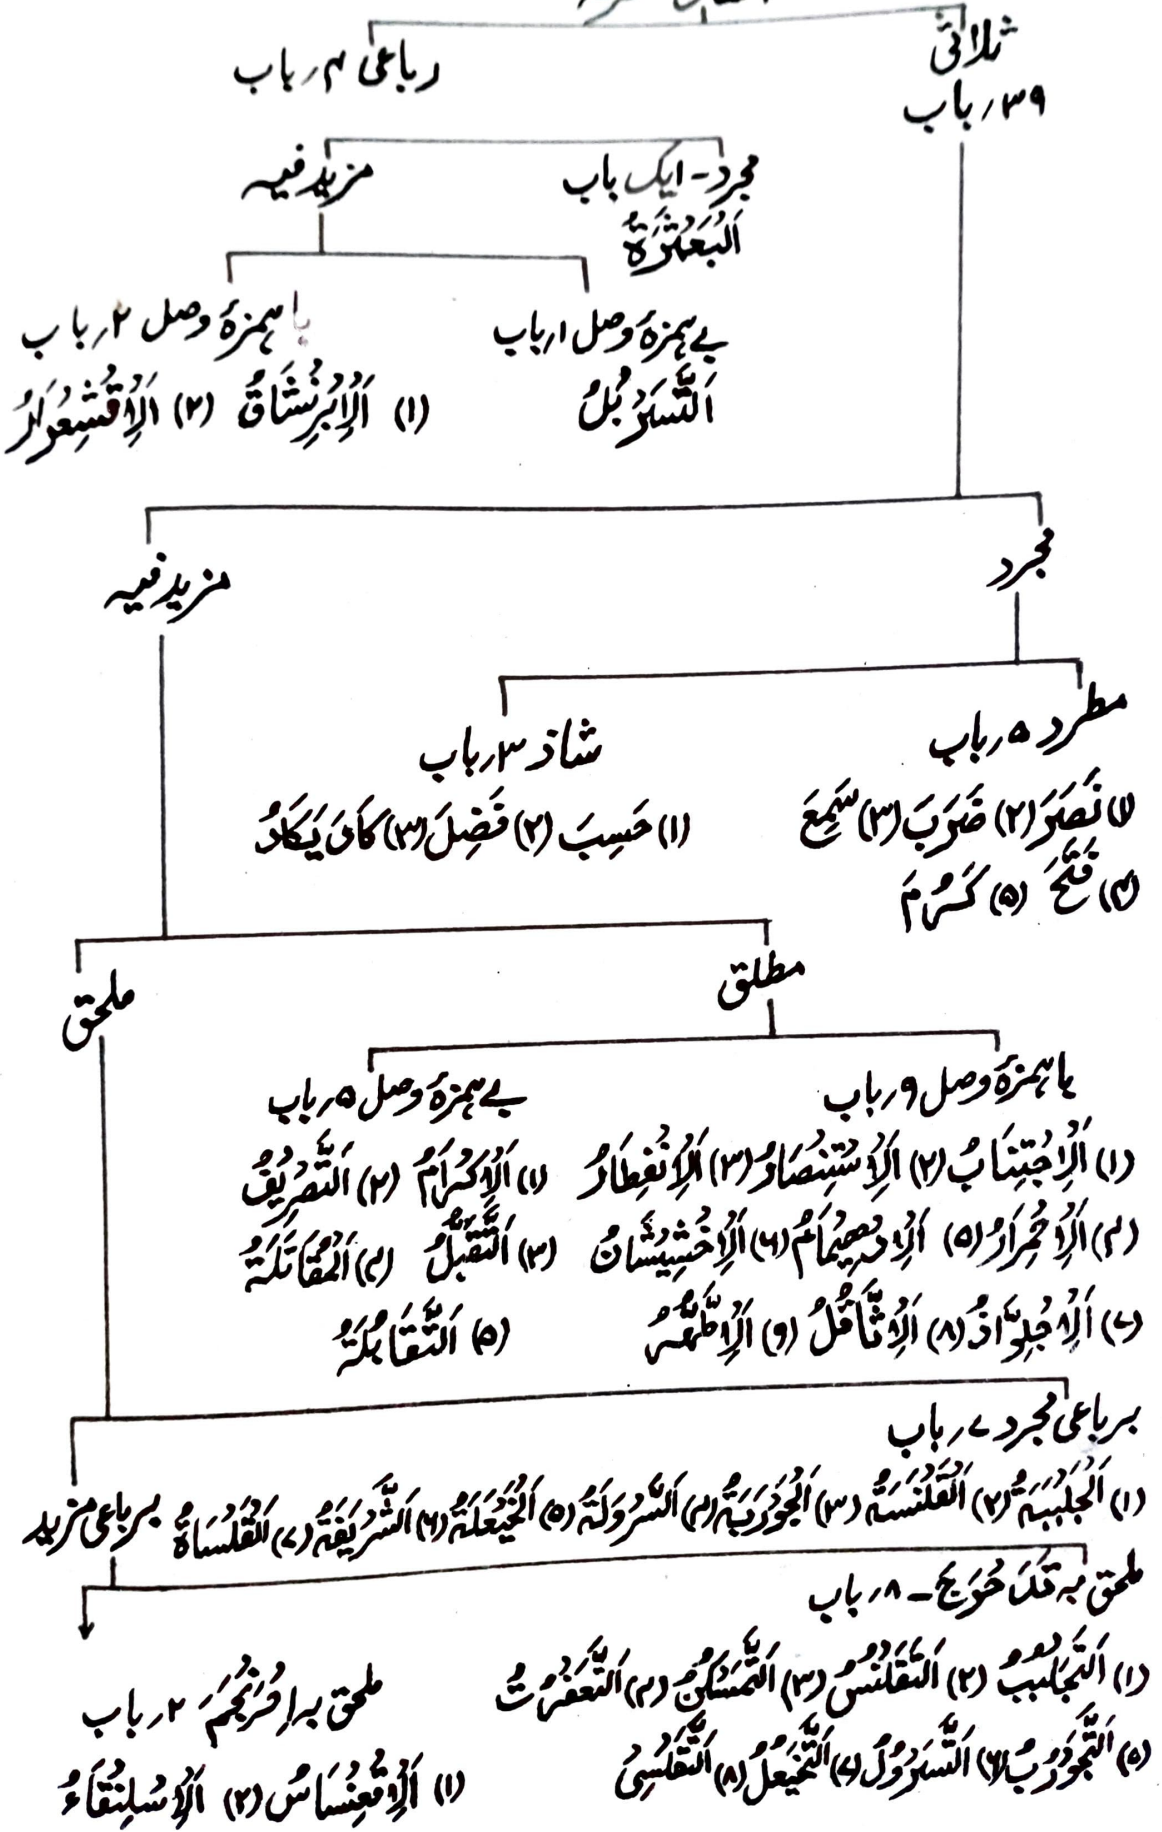 ثلاثی
۳۹؍باب
رباعی ۴؍باب
مجرد - ایک باب
اَلْبَعْثَرَةُ
مزید فیہ
بے ہمزۂ وصل ۱؍باب
اَلتَّسَرْبُلُ
با ہمزۂ وصل ۲؍باب
(۱) اَلْاِبْرِنْشَاقُ (۲) اَلْاِقْشِعْرَارُ
مجرد
مزید فیہ
مطرد ۵؍باب
(۱) نَصَرَ (۲) ضَرَبَ (۳) سَمِعَ
(۴) فَتَحَ (۵) كَرُمَ
شاذ ۳؍باب
(۱) حَسِبَ (۲) فَضِلَ (۳) كَادَ يَكَادُ
مطلق
ملحق
با ہمزۂ وصل ۹؍باب
(۱) اَلْاِجْتِنَابُ (۲) اَلْاِسْتِنْصَارُ (۳) اَلْاِنْفِطَارُ
(۴) اَلْاِحْمِرَارُ (۵) اَلْاِدْهِيْمَامُ (۶) اَلْاِخْشِيْشَانُ
(۷) اَلْاِجْلِوَّاذُ (۸) اَلْاِثَّاقُلُ (۹) اَلْاِطَّهُّرُ
بے ہمزۂ وصل ۵؍باب
(۱) اَلْاِكْرَامُ (۲) اَلتَّصْرِيْفُ
(۳) اَلتَّقَبُّلُ (۴) اَلْمُقَاتَلَةُ
(۵) اَلتَّقَابُلَةُ
برباعی مجرد ۷؍باب
(۱) اَلْجَلْبَبَةُ (۲) اَلْقَلْنَسَةُ (۳) اَلْجَوْرَبَةُ (۴) اَلسَّرْوَلَةُ (۵) اَلْخَيْعَلَةُ (۶) اَلشَّرْيَفَةُ (۷) اَلْقَلْسَاةُ
برباعی مزید
ملحق بہ تَدَحْرَجَ - ۸؍باب
(۱) اَلتَّجَلْبُبُ (۲) اَلتَّقَلْنُسُ (۳) اَلتَّمَسْكُنُ (۴) اَلتَّعَفْرُتُ
(۵) اَلتَّجَوْرُبُ (۶) اَلتَّسَرْوُلُ (۷) اَلتَّخَيْعُلُ (۸) اَلتَّقَلْسِيُ
ملحق بہ اِفْرَنْجَمَ ۲؍باب
(۱) اَلْاِقْعِنْسَاسُ (۲) اَلْاِسْلِنْقَاءُ